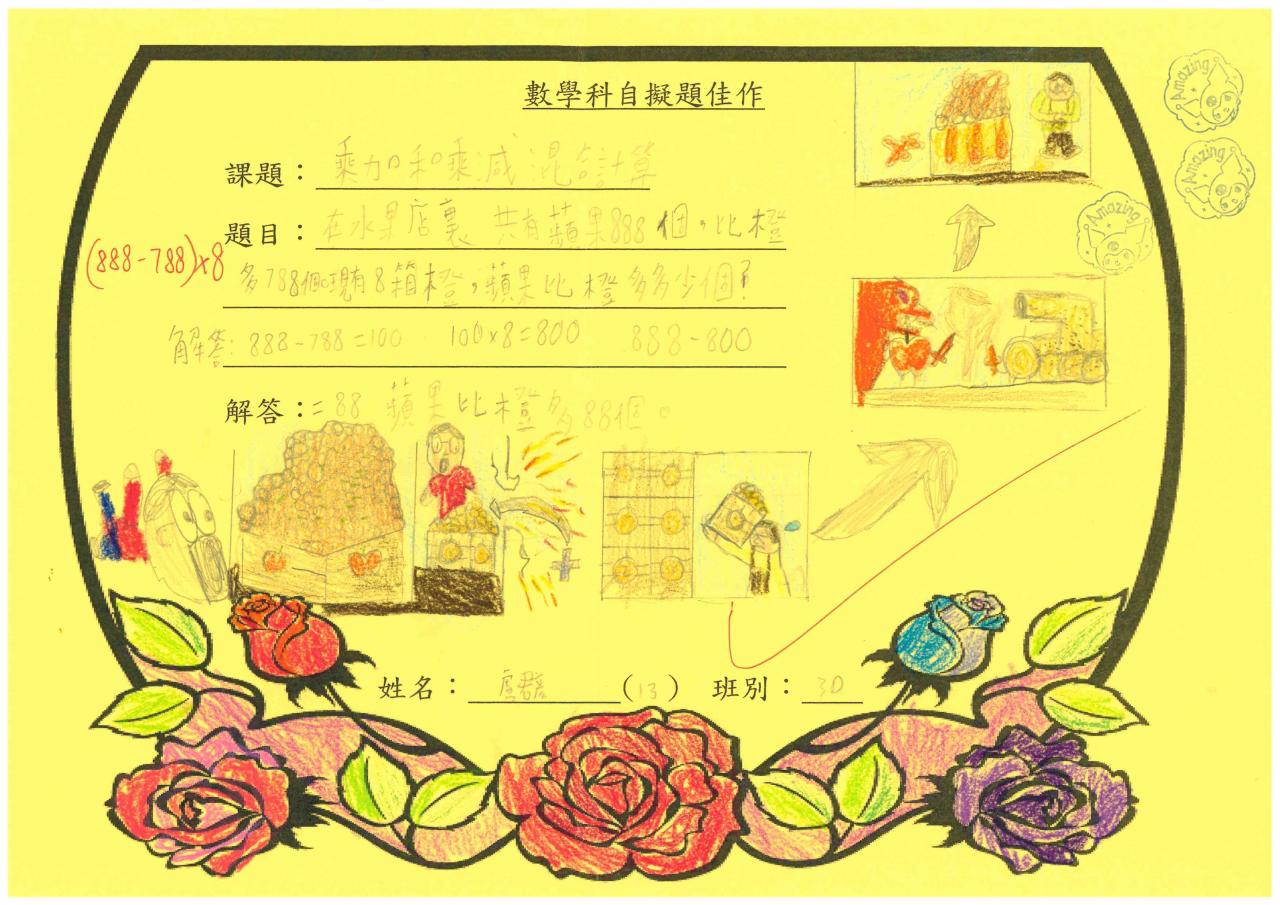 數學科自擬題佳作
課題：乘加和乘減混合計算
題目：在水果店裏 共有蘋果888個，比橙
(888-788)x8
多788個。現有8箱橙，蘋果比橙多多少個？
解答: 888-788=100 100x8=800 888-800
解答：=88 蘋果比橙多88個。
姓名： (13) 班別：3D
Amazing
Amazing
Amazing